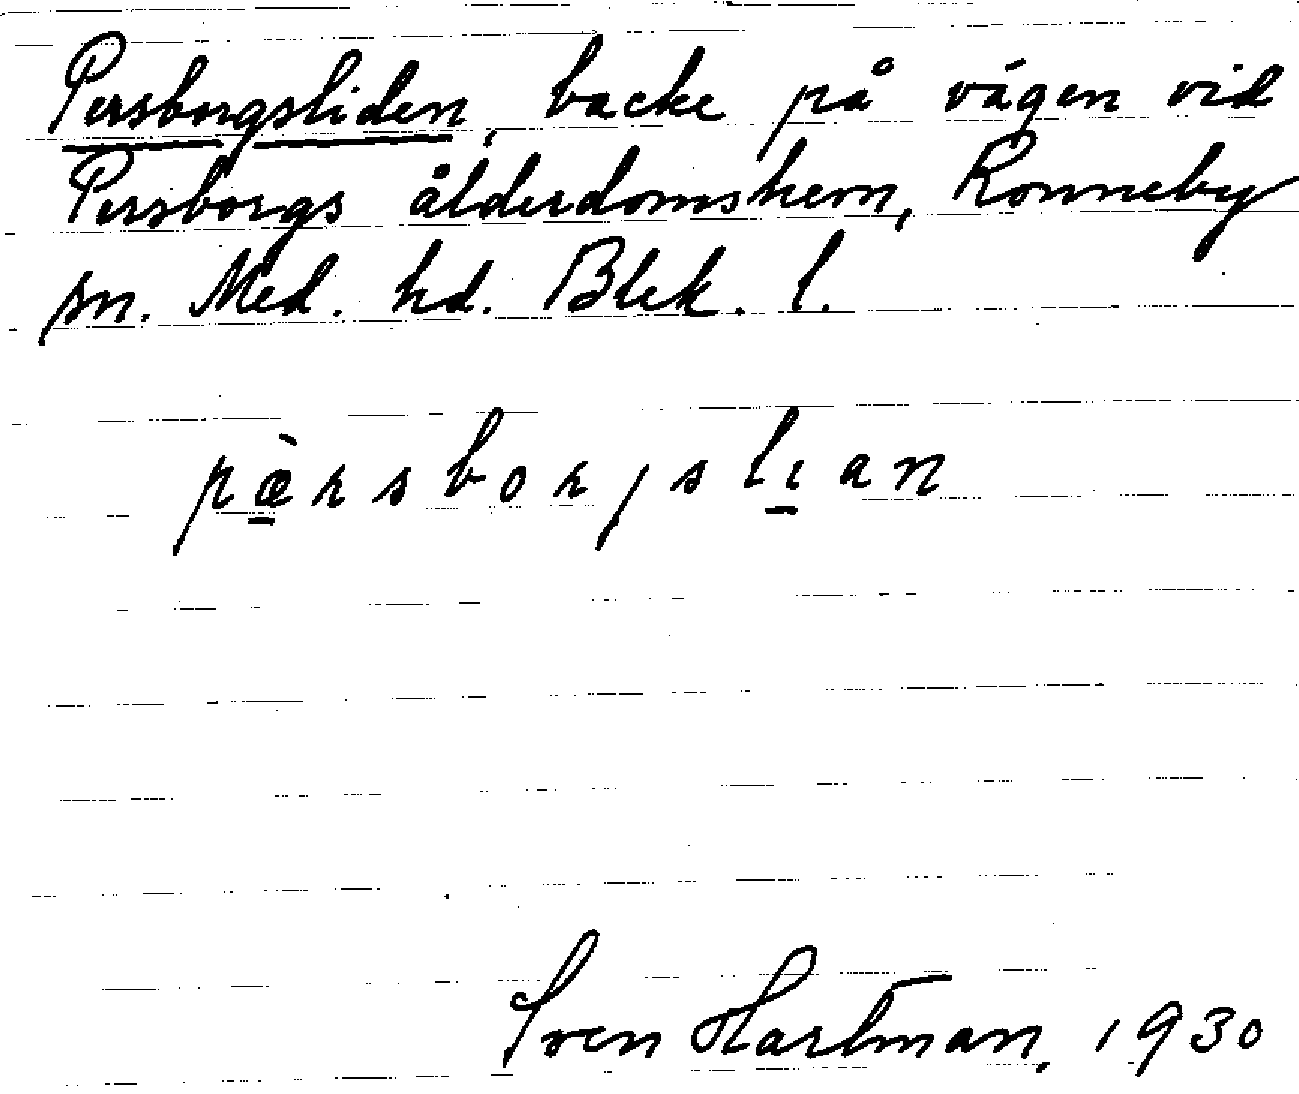 Persborgsliden, backe på vägen vid
Persborgs ålderdomshem, Ronneby
sn. Med. hd. Blek. l.
pæ̀rsborjslıan
Sven Hartman, 1930